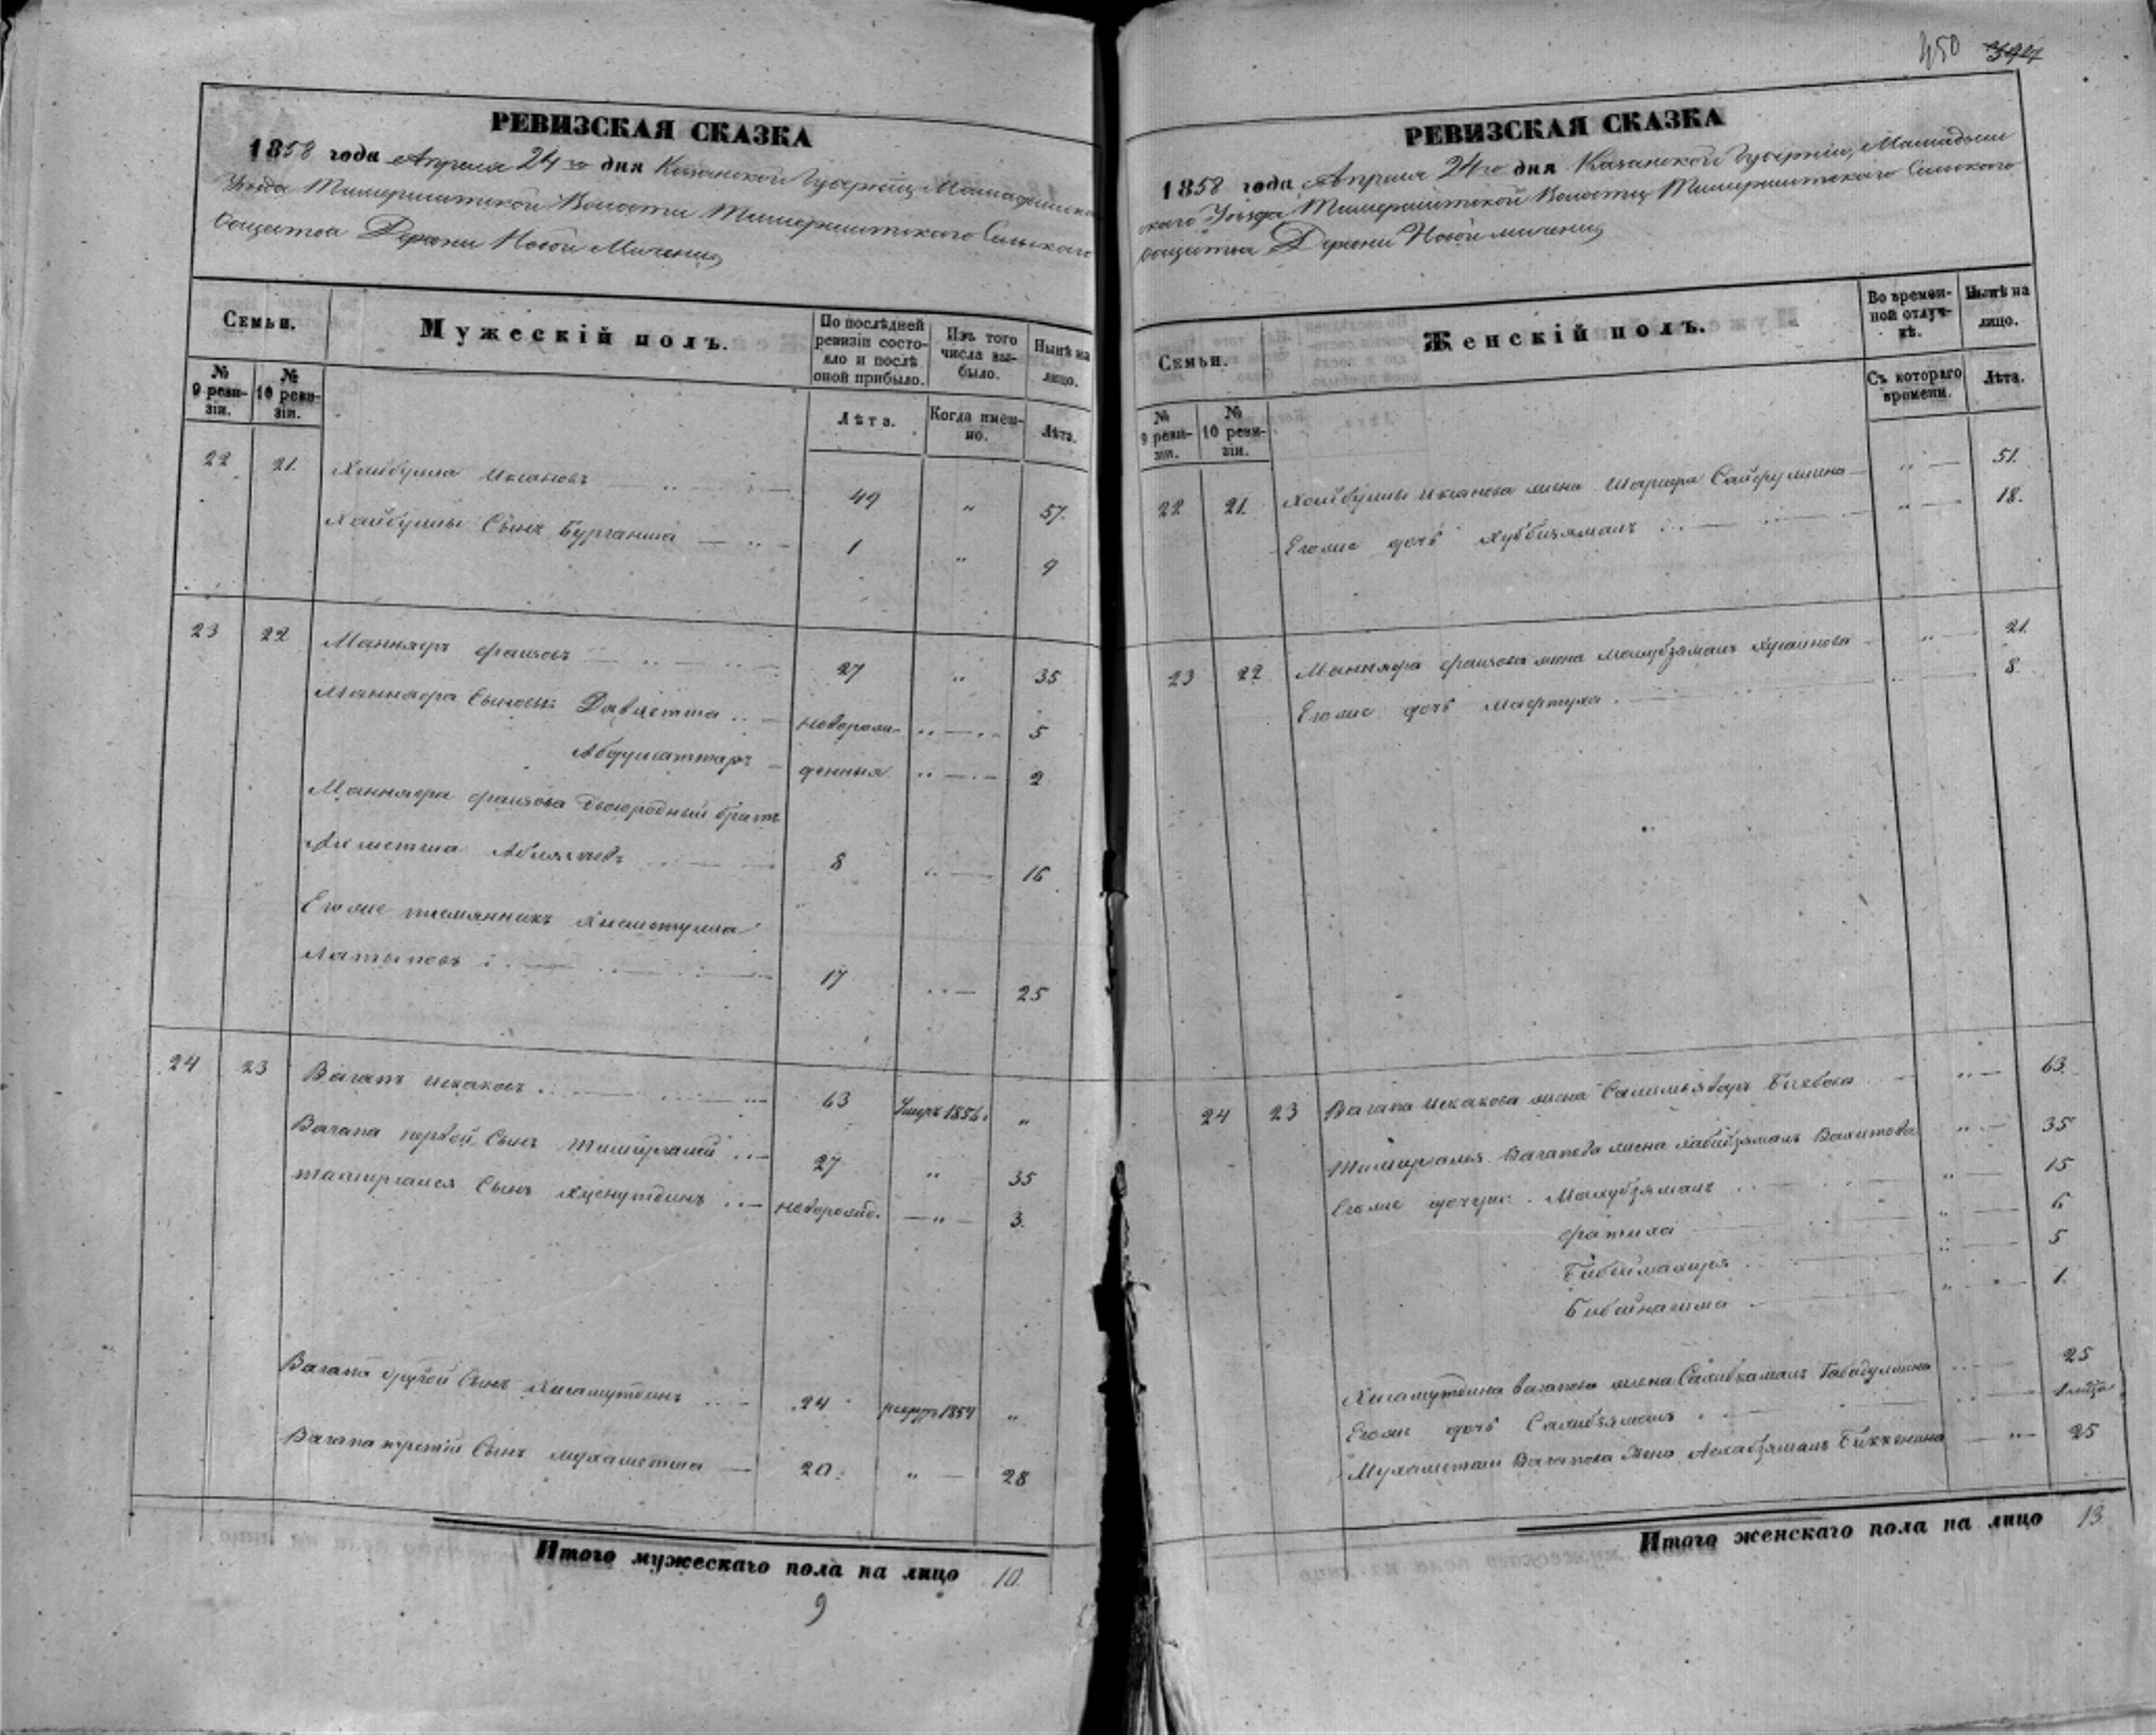 450 394
РЕВИЗСКАЯ СКАЗКА
1858 года Апреля 24го дня Казанской Губернии Мамадышска
Уезда Тимершитской Волости Тимершитскаго Сельскаго
Общества Деревни Новой Мичени
Семьи.
Мужескій полъ.
По послѣдней ревизіи состояло и послѣ оной прибыло.
Изъ того числа выбыло.
Нынѣ на лицо.
№ 9 ревизіи.
№ 10 ревизіи.
Лѣта.
Когда именно.
Лѣта.
22 21. Хайбулла Иксановъ 49 „ 57.
Хайбуллы Сынъ Бурганша 1 „ 9
23 22 Маннафъ Фаизовъ 27 „ 35
Маннафа Сыновья Давлетша новорож- „ 5
Абдулсаттаръ денныя „ 2
Маннафа Фаизова Двоюродный братъ
Ахметша 8 „ 16
Егоже племянникъ Хисметулла
Латыповъ 17 „ 25
24 23 Вагапъ Искаковъ 63 Умеръ 1856. „
Вагапа первой Сынъ Тимиргалей 27 „ 35
Тимиргалея Сынъ Хуснутдинъ новорожд. „ 3.
Вагапа другой Сынъ Хисамутдинъ 24 рекрут 1854 „
Вагапа третій Сынъ Мухаметша 20. „ 28
Итого мужескаго пола на лицо 10.
9
РЕВИЗСКАЯ СКАЗКА
1858 года Апреля 24го дня Казанской Губерніи, Мамадыш
скаго Уезда Тимершитской Волости Тимершитскаго Сельскаго
Общества Деревни Новой Мичени
Семьи.
Женскій полъ.
Во временной отлучкѣ.
Нынѣ на лицо.
№ 9 ревизіи.
№ 10 ревизіи.
Съ котораго времени.
Лѣта.
22 21. Хайбуллы Иксанова жена Шарифа Сайфуллина „ 51.
Егоже дочь Хуббизямалъ „ 18.
23 22 Маннафа Фаизова жена Махубзямалъ Хусаинова „ 21.
Егоже дочь Мафтуха 8.
24 23 Вагапа Искакова жена Бикбова „ 63.
Тимиргалея Вагапова жена Хабибзямалъ Вахитова „ 35
Егоже дочери: Махубзямалъ „ 15
Фатиха „ 6
Бибимахиря „ 5
Бибинагима „ 1.
Хисамутдина Вагапова жена Сахибкамалъ Габадуллина 25
Егоже дочь Сахибзямалъ
Мухаметши Вагапова Жена Асхабзямалъ Биккенина „ 25
Итого женскаго пола на лицо 13.